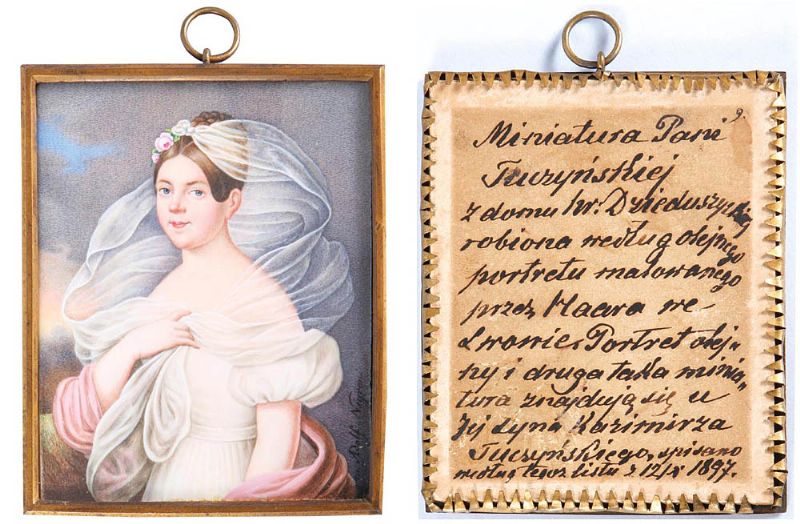 9.
Miniatura Pani
Tuczyńskiej
z domu hr. Dzieduszyckiej
robiona według olejnego
portretu malowanego
przez Maara we
Lwowie. Portret olej-
ny i druga taka minia-
tura znajdują się u
Jej syna Kazimirza
Tuczyńskiego, spisano
według tegoż listu z 12/X 1897.